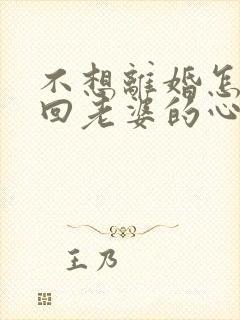 不想離婚怎
回老婆的心
王乃